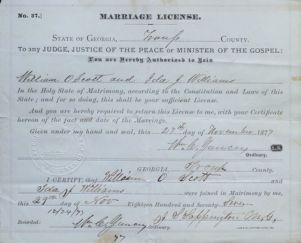 No. 37.
MARRIAGE LICENSE.
STATE OF GEORGIA, Troup COUNTY.
To any JUDGE, JUSTICE OF THE PEACE or MINISTER OF THE GOSPEL:
You are Hereby Authorized to Join
William O Scott and Ida J. Williams
In the Holy State of Matrimony, according to the Constitution and Laws of this
State; and for so doing, this shall be your sufficient License.
And you are hereby required to return this License to me, with your Certificate
hereon of the fact and date of the Marriage.
Given under my hand and seal, this 27th day of November 1877
Wm. C. Yancey L.S.
Ordinary.
GEORGIA, Troup County.
I CERTIFY, that William O Scott and
Ida J Williams were joined in Matrimony by me,
this 29th day of Nov Eighteen Hundred and Seventy Seven
Recorded: 12/24/77
Wm. C. Yancey
Ordinary